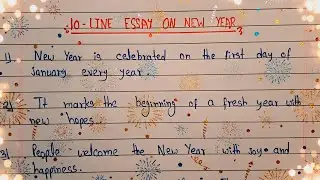 10-LINE ESSAY ON NEW YEAR
1) New Year is celebrated on the first day of
January every year.
2) It marks the beginning of a fresh year with
new hopes.
3) People welcome the New Year with joy and
happiness.